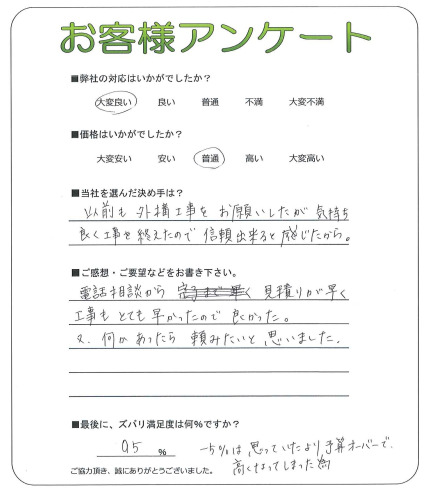 お客様アンケート
■弊社の対応はいかがでしたか？
大変良い 良い 普通 不満 大変不満
■価格はいかがでしたか？
大変安い 安い 普通 高い 大変高い
■当社を選んだ決め手は？
以前も外構工事をお願いしたが気持ち
良く工事を終えたので信頼出来ると感じたから。
■ご感想・ご要望などをお書き下さい。
電話相談から 見積りが早く
工事もとても早かったので良かった。
又、何かあったら頼みたいと思いました。
■最後に、ズバリ満足度は何%ですか？
95 %
-5%は思っていたより予算オーバーで
高くなってしまった為
ご協力頂き、誠にありがとうございました。